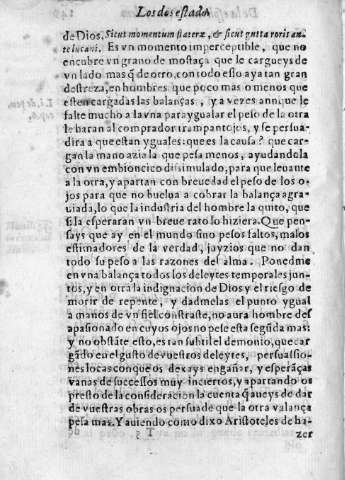 Los dos estados
de Dios. Sicut momentum stateræ, & sicut gutta roris an-
te lucani. Es vn momento imperceptible, que no
encubre vn grano de mostaça que le cargueys de
vn lado mas q̃ de otro, con todo esso ay a tan gran
destreza, en hombres que poco mas o menos que
esten cargadas las balanças, y a vezes aunque le
falte mucho a la vna para ygualar el peso de la otra
le haran al comprador trampantojos, y se persua-
dira a que estan yguales: que es la causa? que car-
gan la mano azia la que pesa menos, ayudandola
con vn embioncico dissimulado, para que leuante
a la otra, y apartan con breuedad el peso de los o-
jos para que no buelua a cobrar la balança agra-
uiada, lo que la industria del hombre la quito, que
si la esperaran vn breue rato lo hiziera. Que pen-
says que ay en el mundo sino pesos faltos, malos
estimadores de la verdad, juyzios que no dan
todo su peso a las razones del alma. Ponedme
en vna balança todos los deleytes temporales jun-
tos, y en otra la indignacion de Dios y el riesgo de
morir de repente, y dadmelas el punto ygual
a manos de vn fiel contraste, no aura hombre des
apasionado en cuyos ojos no pese esta segũda mas:
y no obstãte esto, es tan subtil el demonio, que car
gãdo en el gusto de vuestros deleytes, persuassio-
nes locas con que os dexays engañar, y esperãças
vanas de successos muy inciertos, y apartando os
presto de la consideracion la cuenta q̃ aueys de dar
de vuestras obras os persuade que la otra valança
pesa mas. Y auiendo como dixo Aristoteles de ha-
T zer